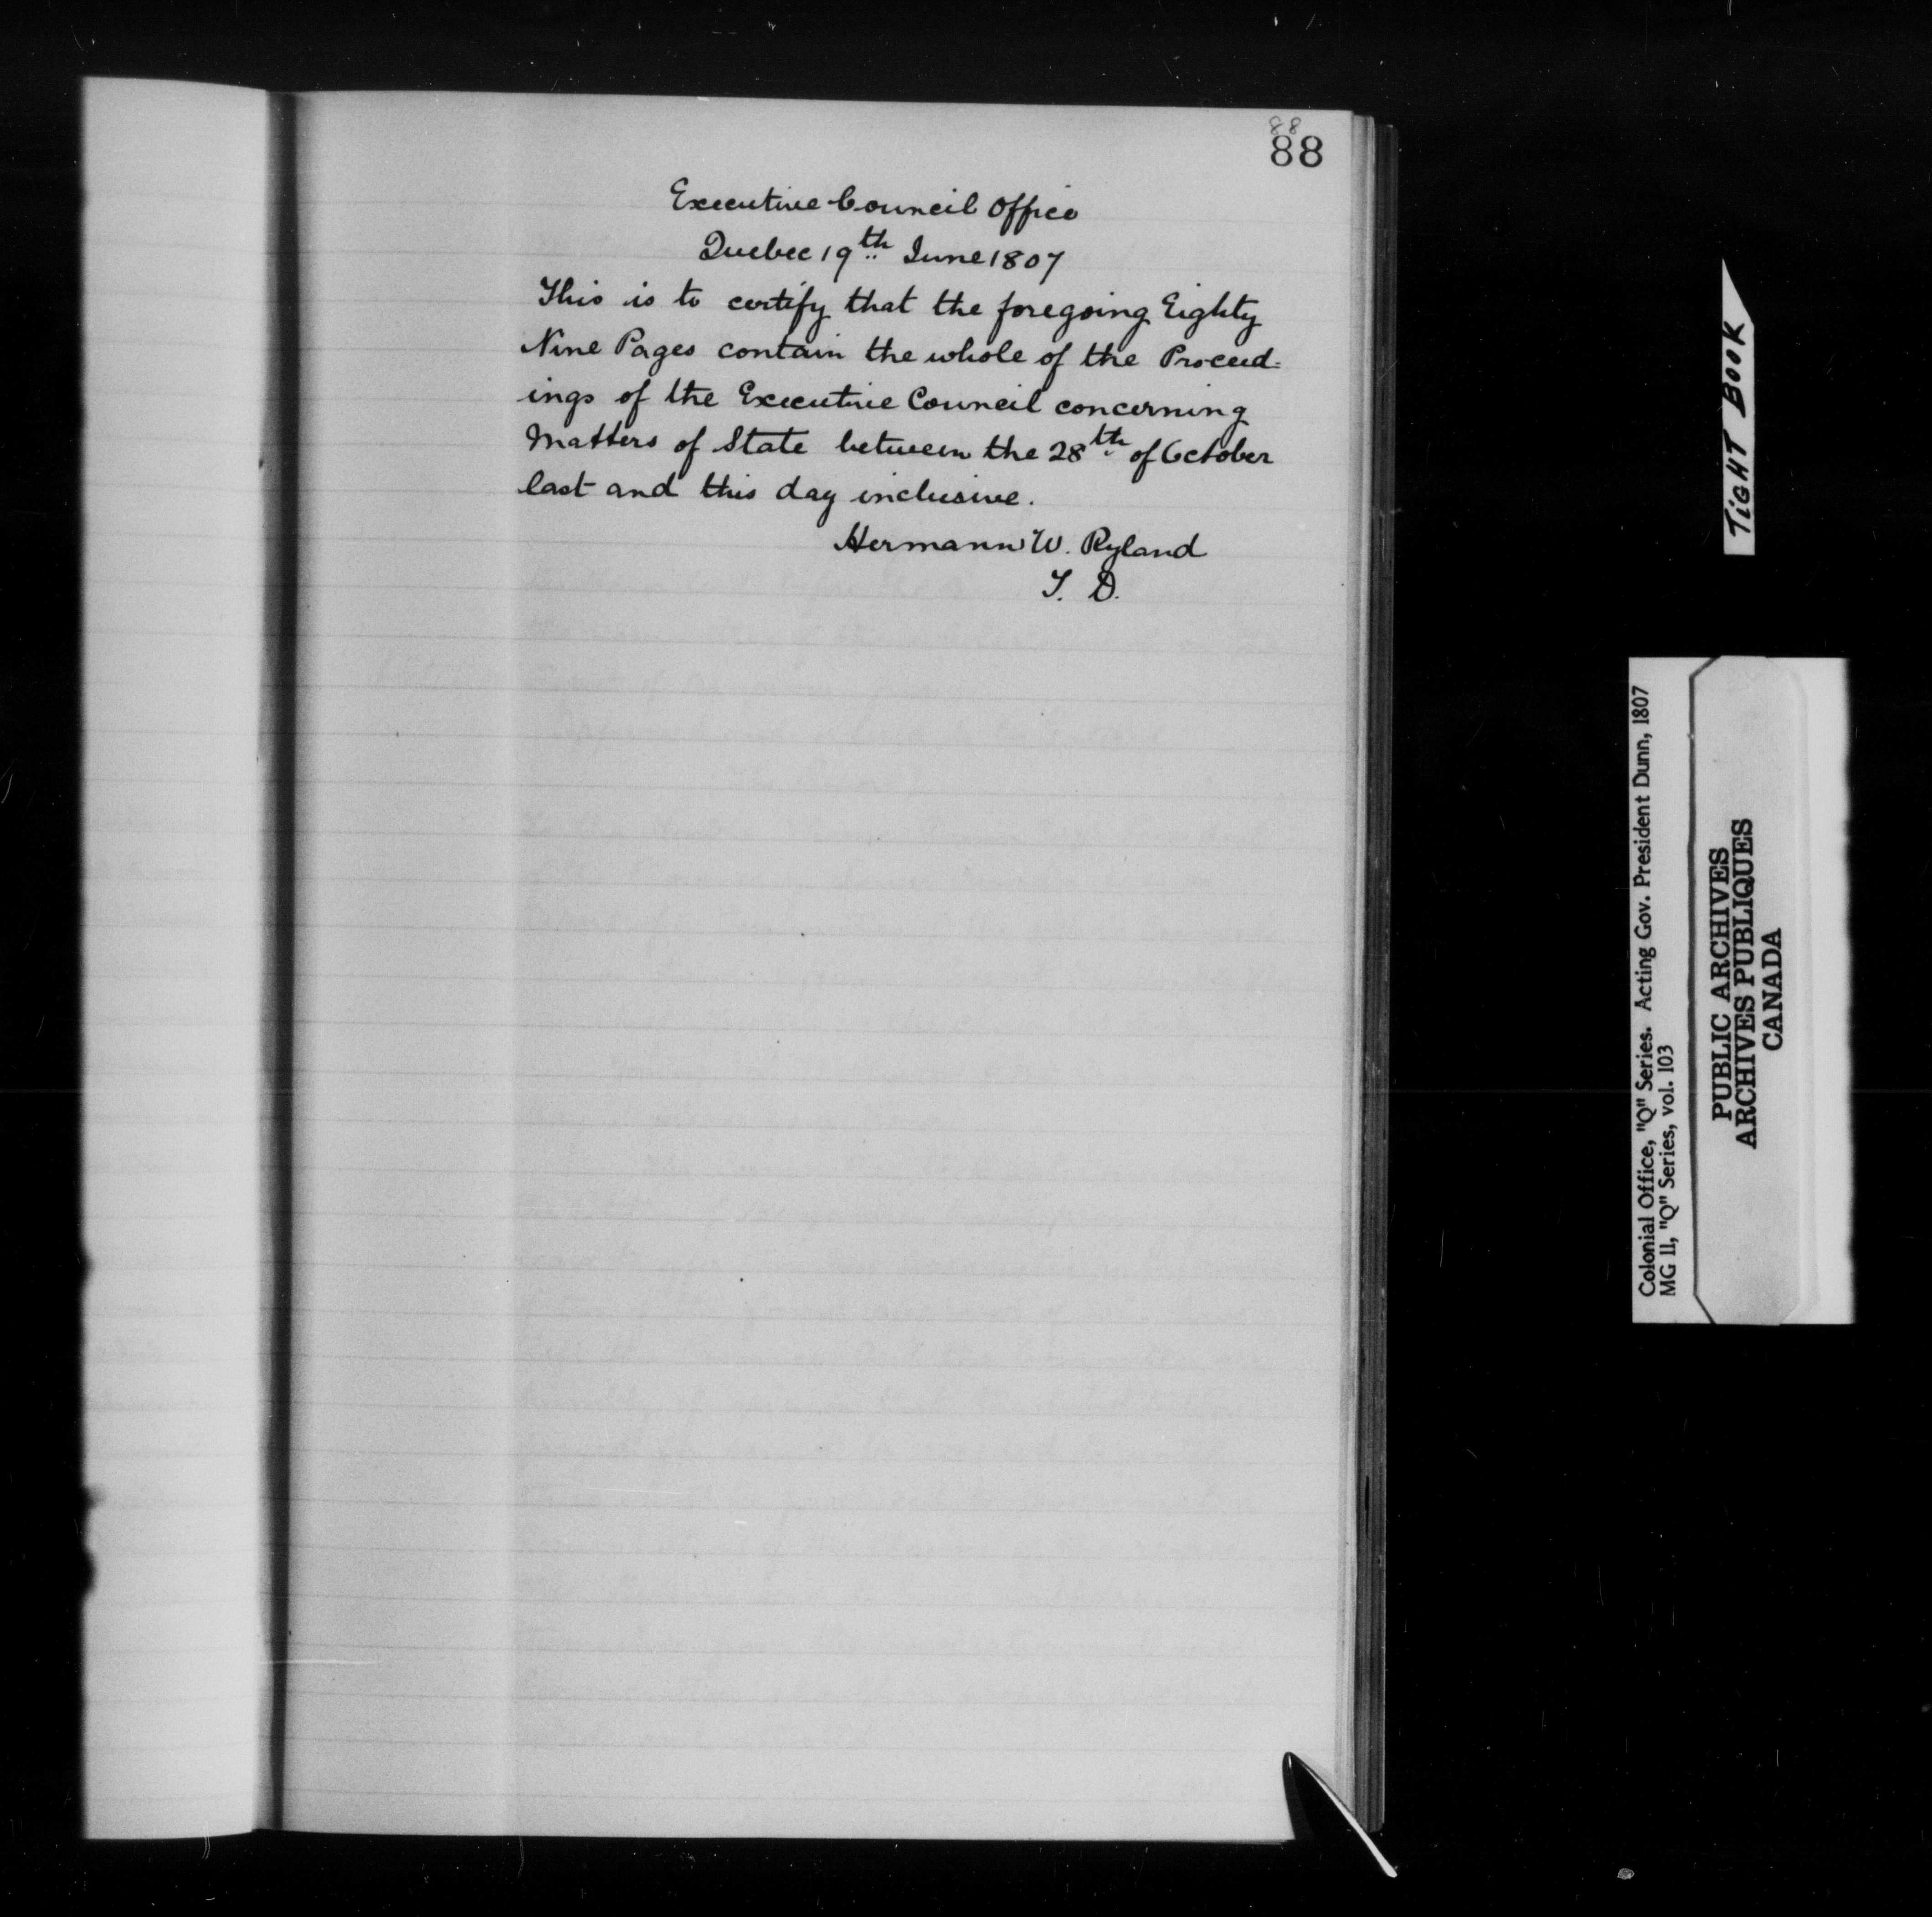 88
88
Executive Council Office
Quebec 19th June 1807
This is to certify that the foregoing Eighty
Nine Pages contain the whole of the Proceed=
ings of the Executive Council concerning
Matters of State between the 28th of October
last and this day inclusive.
Hermann W. Ryland
T. D.
TIGHT BOOK
Colonial Office, "Q" Series. Acting Gov. President Dunn, 1807
MG 11, "Q" Series, vol. 103
PUBLIC ARCHIVES
ARCHIVES PUBLIQUES
CANADA